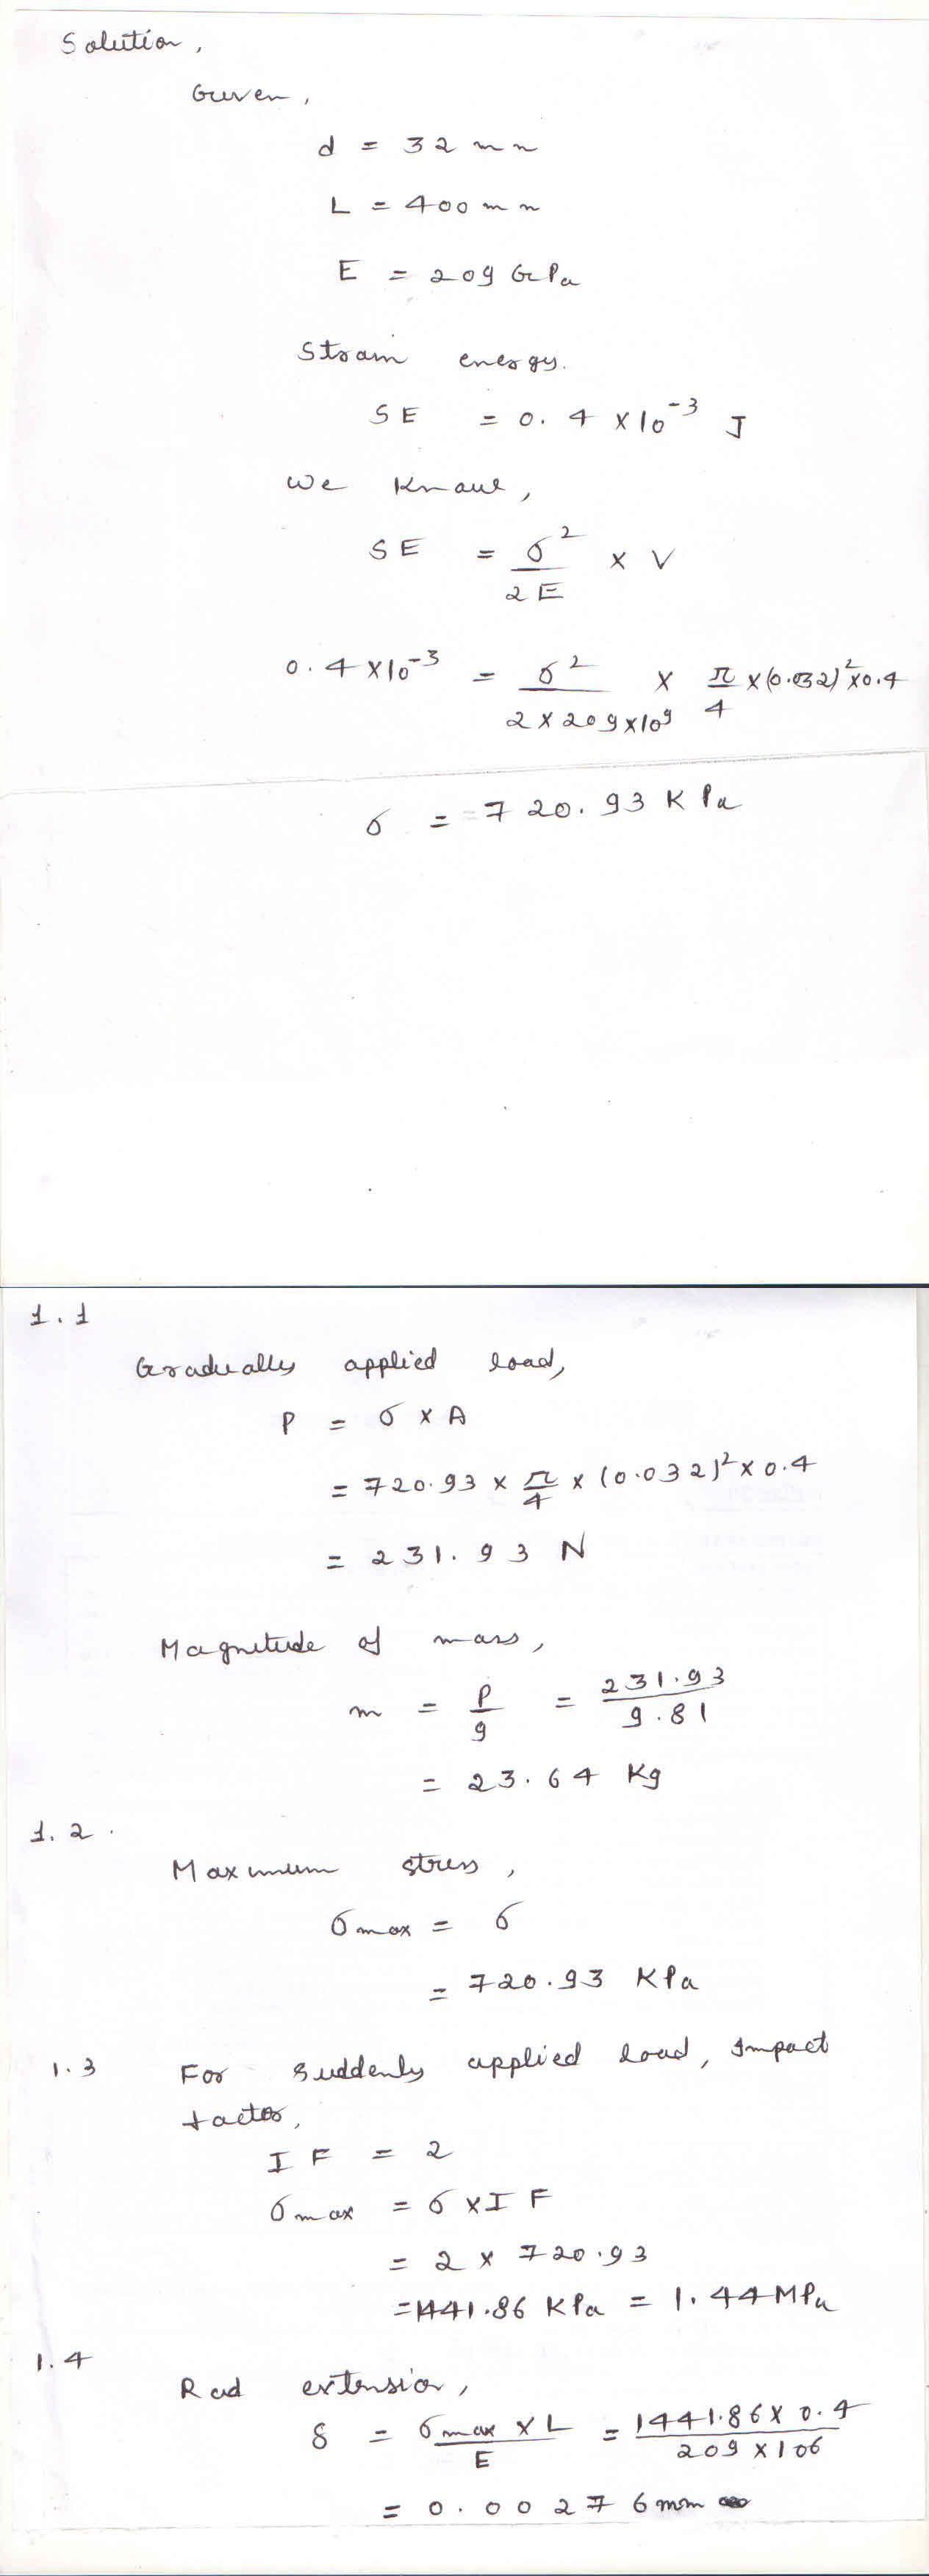 Solution,
Given,
d = 32 mm
L = 400 mm
E = 209 GPa
Strain energy.
SE = 0.4 × 10⁻³ J
We Know,
SE = σ²/2E × V
0.4 × 10⁻³ = σ²/(2 × 209 × 10⁹) × π/4 × (0.032)² × 0.4
σ = 720.93 KPa
1.1
Gradually applied load,
P = σ × A
= 720.93 × π/4 × (0.032)² × 0.4
= 231.93 N
Magnitude of mass,
m = P/g = 231.93/9.81
= 23.64 Kg
1.2.
Maximum stress,
σmax = σ
= 720.93 KPa
1.3 For suddenly applied load, Impact
factor,
IF = 2
σmax = σ × IF
= 2 × 720.93
= 1441.86 KPa = 1.44 MPa
1.4
Rod extension,
δ = σmax × L/E = 1441.86 × 0.4/209 × 10⁶
= 0.00276 mm